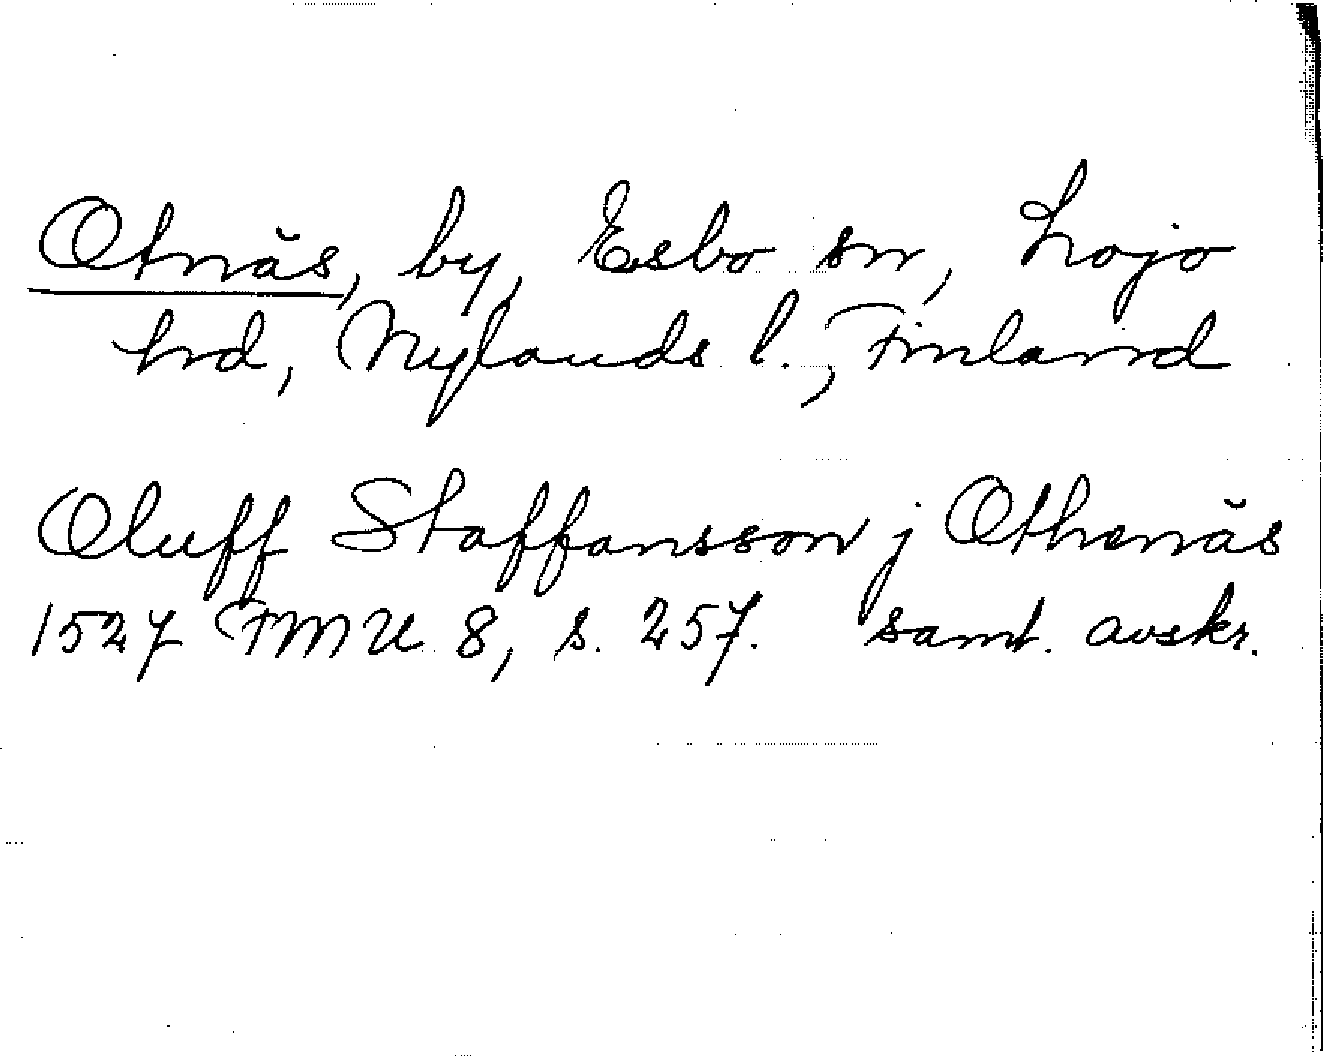 Otnäs, by, Esbo sn, Lojo
hrd, Nylands l., Finland
Oluff Staffansson j Othenäs
1527 FMU 8, s. 257. samt. avskr.